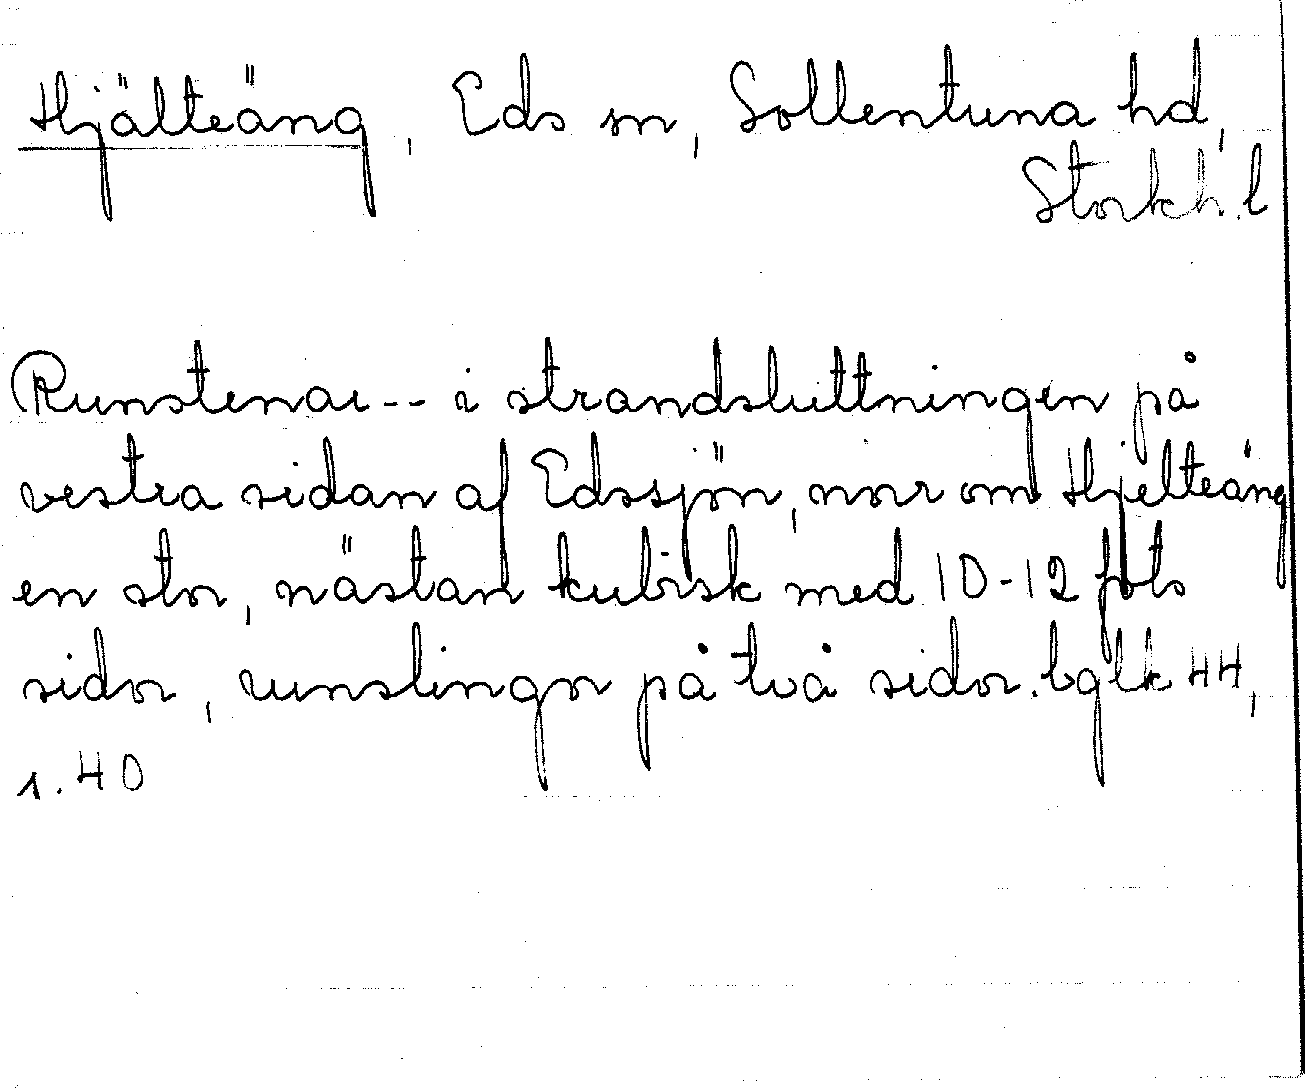 Hjälteäng, Eds sn, Sollentuna hd,
Stockh. l
Runstenar -- i strandsluttningen på
vestra sidan af Edssjön, norr om Hjelteäng
en stor, nästan kubisk med 10-12 fots
sidor, runslingor på två sidor. bglk 44,
s. 40